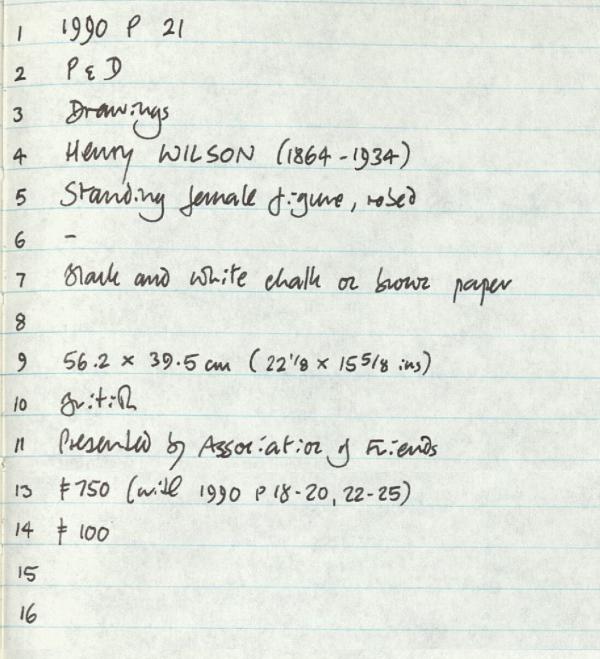 1 1990 P 21
2 P & D
3 Drawings
4 Henry WILSON (1864-1934)
5 Standing female figure, robed
6 -
7 Black and white chalk on brown paper
8
9 56.2 × 39.5 cm (22 1/8 × 15 5/8 ins)
10 British
11 Presented by Association of Friends
13 £750 (with 1990 P 18-20, 22-25)
14 £100
15
16